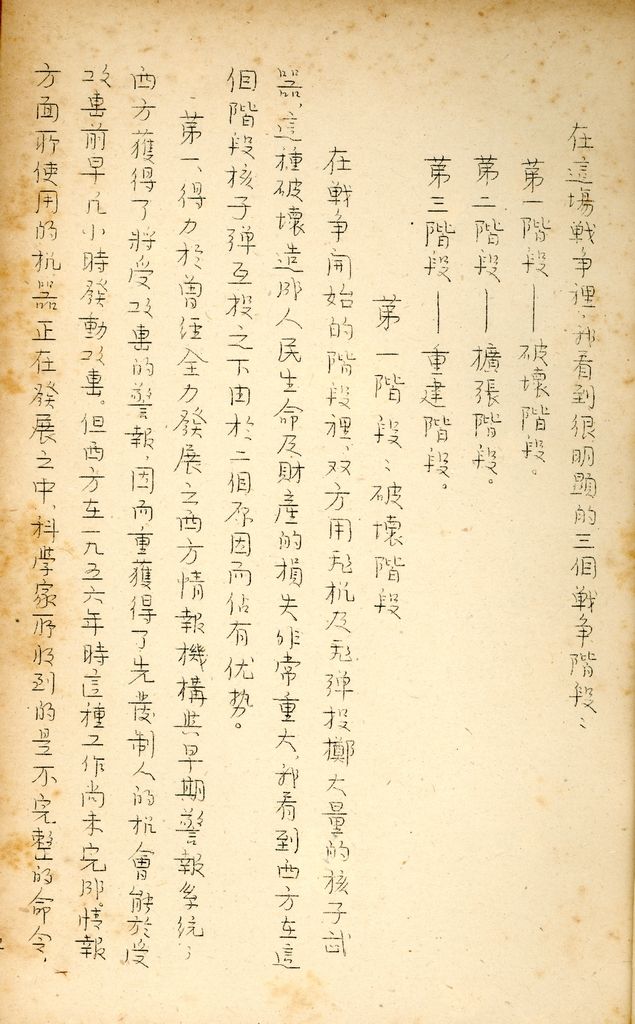 在這場戰爭裡，我看到很明顯的三個戰爭階段：
第一階段——破壞階段。
第二階段——擴張階段。
第三階段——重建階段。
第一階段：破壞階段
在戰爭開始的階段裡，双方用飛机及飛弹投擲大量的核子武
器，這種破壞造成人民生命及財產的損失非常重大，我看到西方在這
個階段核子弹互投之下由於二個原因而佔有优势。
第一、得力於曾经全力發展之西方情報機構與早期警報系統；
西方獲得了將受攻擊的警報，因而重獲得了先發制人的机會能於受
攻擊前早几小時發動攻擊。但西方在一九五六年時這種工作尚未完成。情報
方面所使用的机器正在發展之中，科學家所收到的是不完整的命令，